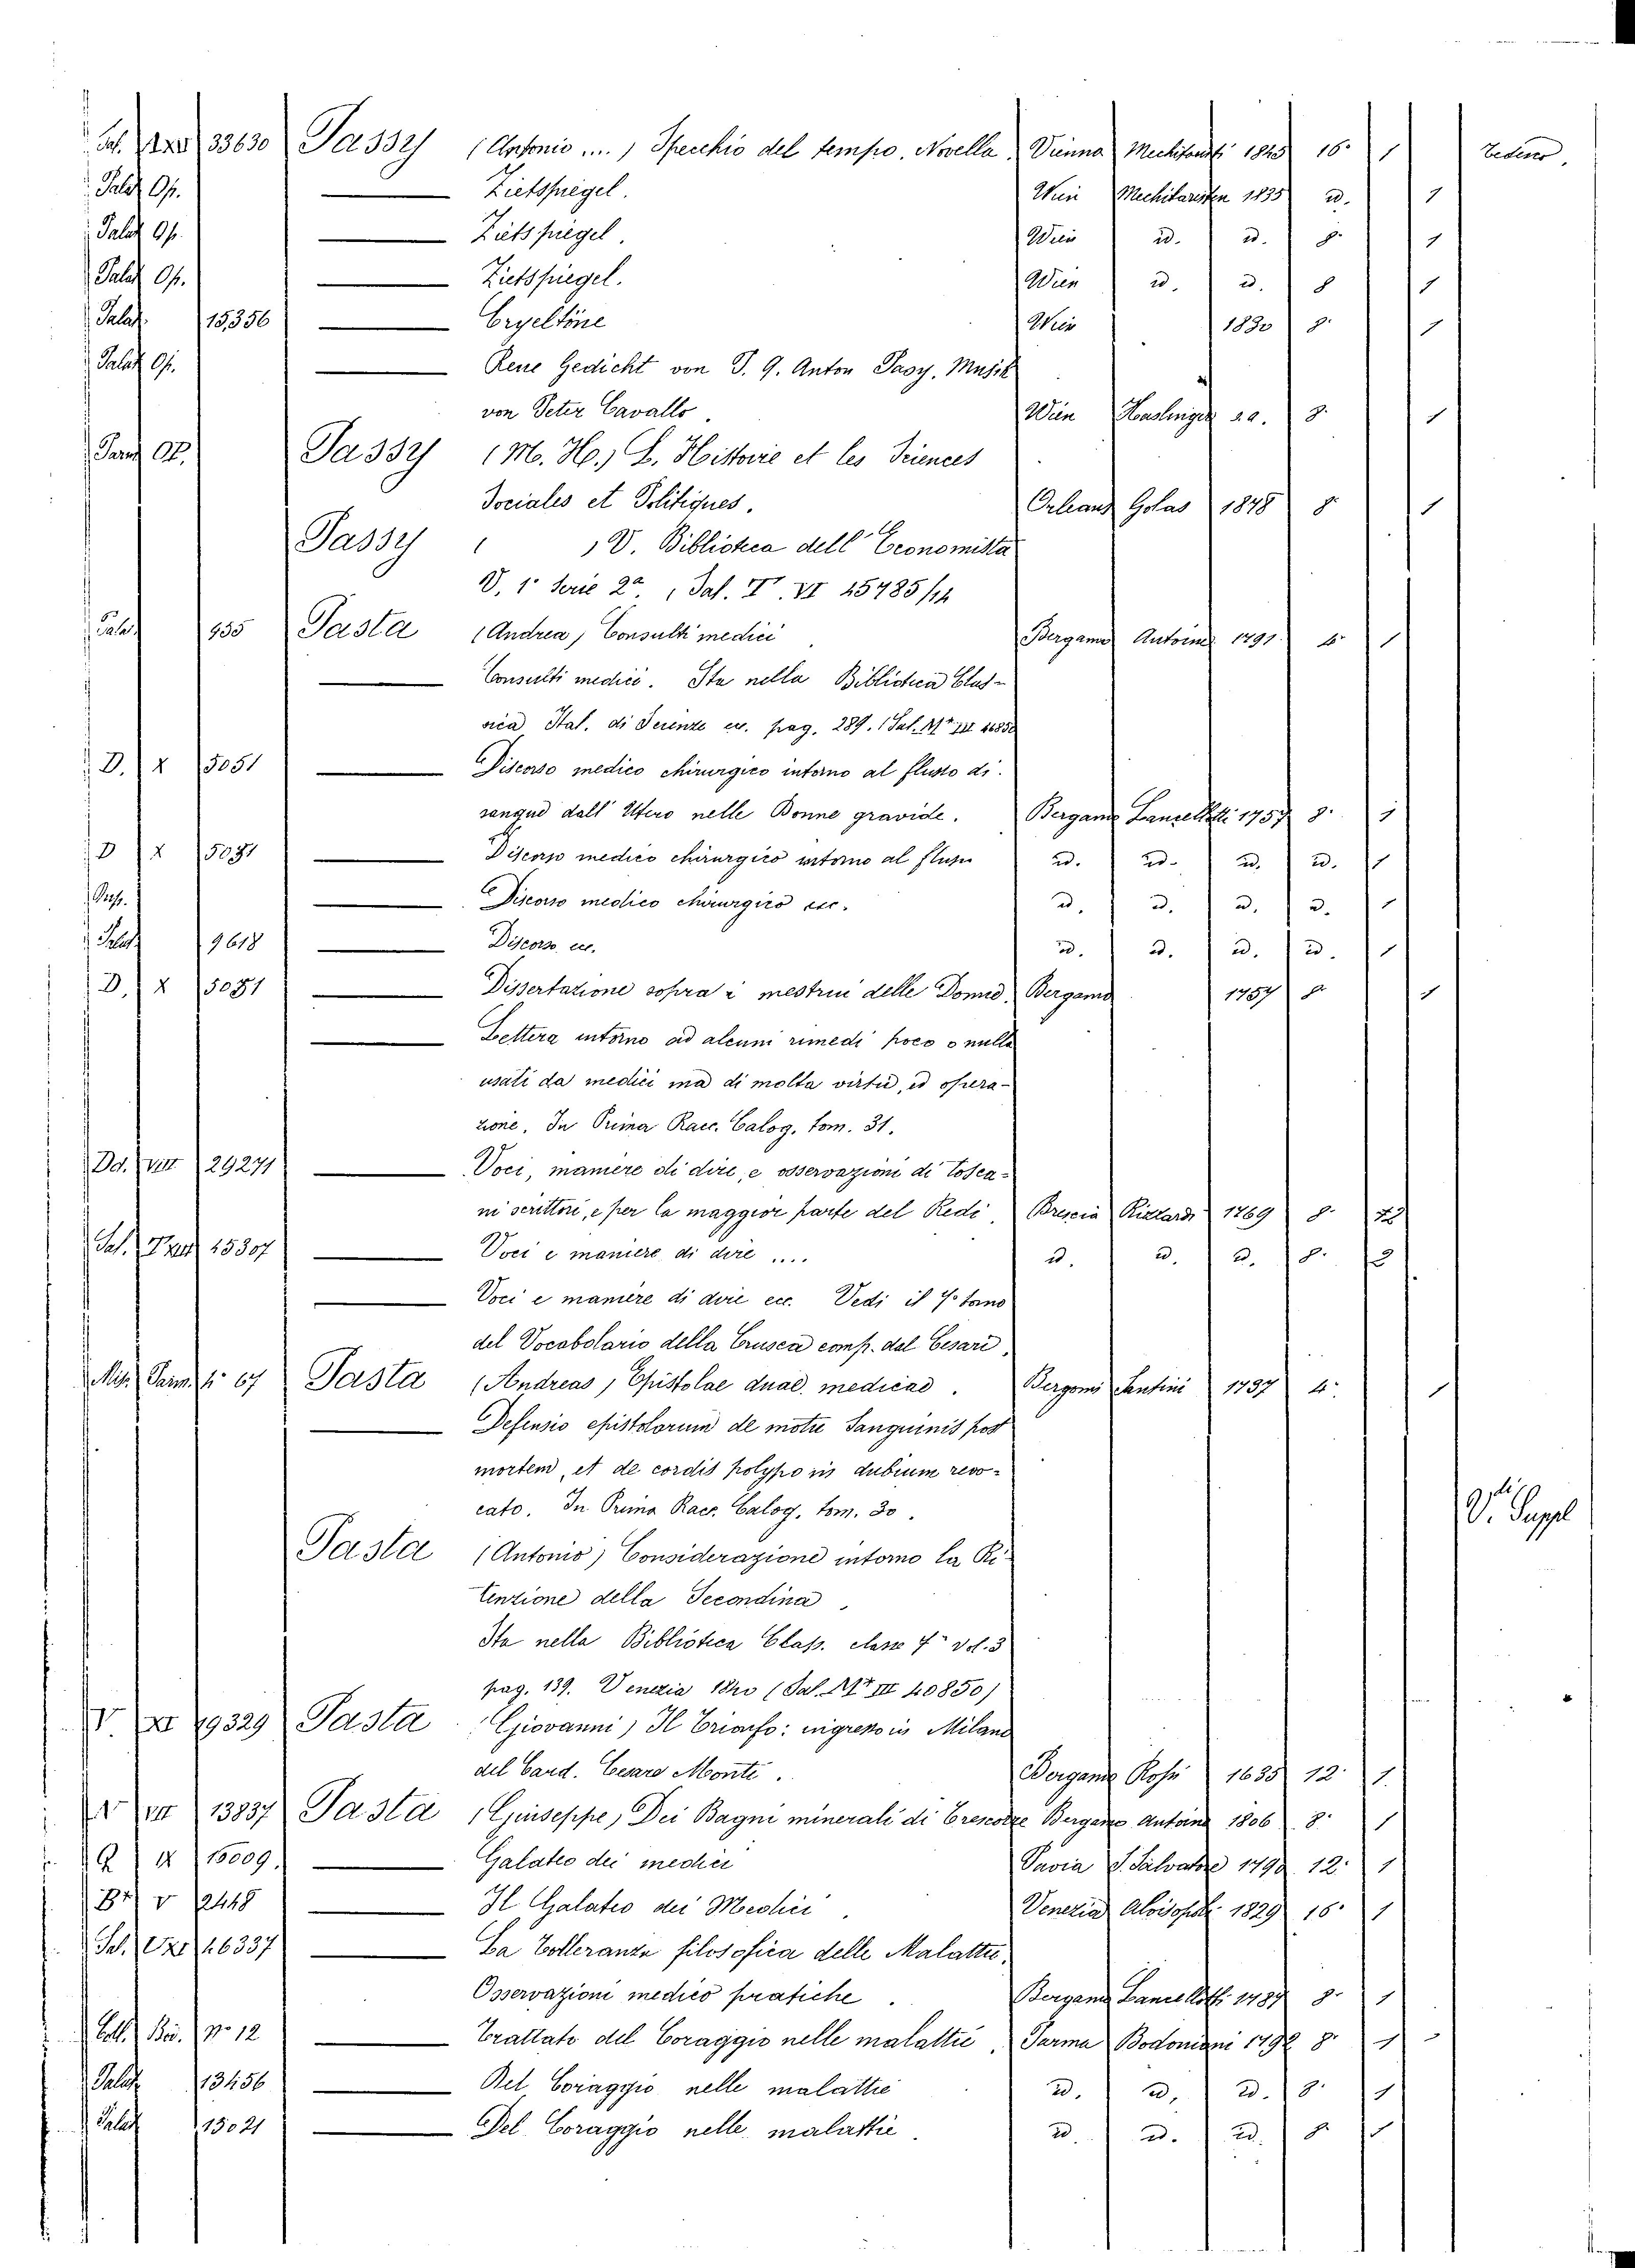 33630 Passy (Antonio ....) Specchio del tempo, Novella. Vienna Mechitaristi 1845 16° 1
Palat Op. Zietspiegel. Wien Mechitaristen 1835 id. 1
Palat Op. Zietspiegel. Wien id. id. 8° 1
Palat Op. Zietspiegel. Wien id. id. 8 1
Palat. 15,356 Orgeltöne Wien 1830 8° 1
Palat Op. Rene Gedicht von J. G. Anton Pasy, Musik
von Peter Cavallo. Wien Haslinger s.a. 8° 1
Passy (M. H.) L. Histoire et les Sciences
Sociales et Politiques. Orleans Golas 1848 8° 1
Passy ( ) V. Biblioteca dell' Economista
V. 1° Serie 2ª, (Sal. VI 15785/14
Palat 955 Pasta (Andrea) Consulti medici Bergamo Antoine 1791 1
Consulti medici. Sta nella Biblioteca Clas-
sica Ital. di Scienze ec. pag. 289. (Sal. III 40850
D. X 5051 Discorso medico chirurgico intorno al flusso di
sangue dall' Utero nelle Donne gravide. Bergamo Lancellotti 1757 8° 1
D X 5081 Discorso medico chirurgico intorno al flusso id. id. id. id. 1
Discorso medico chirurgico ecc. id. id. id. id. 1
Palat 9618 Discorso ec. id. id. id. id. 1
D. X 5081 Dissertazione sopra i mestrui delle Donne, Bergamo 1757 8° 1
Lettera intorno ad alcuni rimedi poco o nulla
usati da medici ma di molta virtù, ed opera-
zione. In Prima Racc. Calog. tom. 31.
Dd. VIII 29271 Voci, maniere di dire, e osservazioni di tosca-
ni scrittori, e per la maggior parte del Redi. Brescia Rizzardi 1769 8°
Sal. 15307 Voci e maniere di dire .... id. id. id. 8°
Voci e maniere di dire ecc. Vedi il 7° tomo
del Vocabolario della Crusca comp. dal Cesari.
Mis. Parm. 4° 67 Pasta (Andreas) Epistolae duae medicae. Bergomi Santini 1737 4° 1
Defensio epistolarum de motu Sanguinis post
mortem, et de cordis polypo in dubium revo-
cato. In Prima Racc. Calog. tom. 30.
V. Suppl
Pasta (Antonio) Considerazione intorno la Ri-
tenzione della Secondina
Sta nella Biblioteca Class. classe 7ª vol. 3
pag. 139. Venezia (Sal. III 40850)
V. XI 19329 Pasta (Giovanni) Il Trionfo: ingresso in Milano
del Card. Cesare Monte. Bergamo Rossi 1635 12° 1
VII 13837 Pasta (Giuseppe) Dei Bagni minerali di Trescorre Bergamo Antoine 1806 8° 1
Q IX 16009. Galateo dei medici Pavia S. Salvatore 12° 1
V 2448 Il Galateo dei Medici. Venezia Alvisopoli 1829 16° 1
Sal. 16337 La Tolleranza filosofica delle Malattie,
Osservazioni medico pratiche. Bergamo Lancellotti 1787 8° 1
Coll. Bo. N° 12 Trattato del Coraggio nelle malattie. Parma Bodoniani 1792 8° 1
Palat 13456 Del Coraggio nelle malattie id. id. id. 8° 1
Palat 15021 Del Coraggio nelle malattie. id. id. id. 8° 1